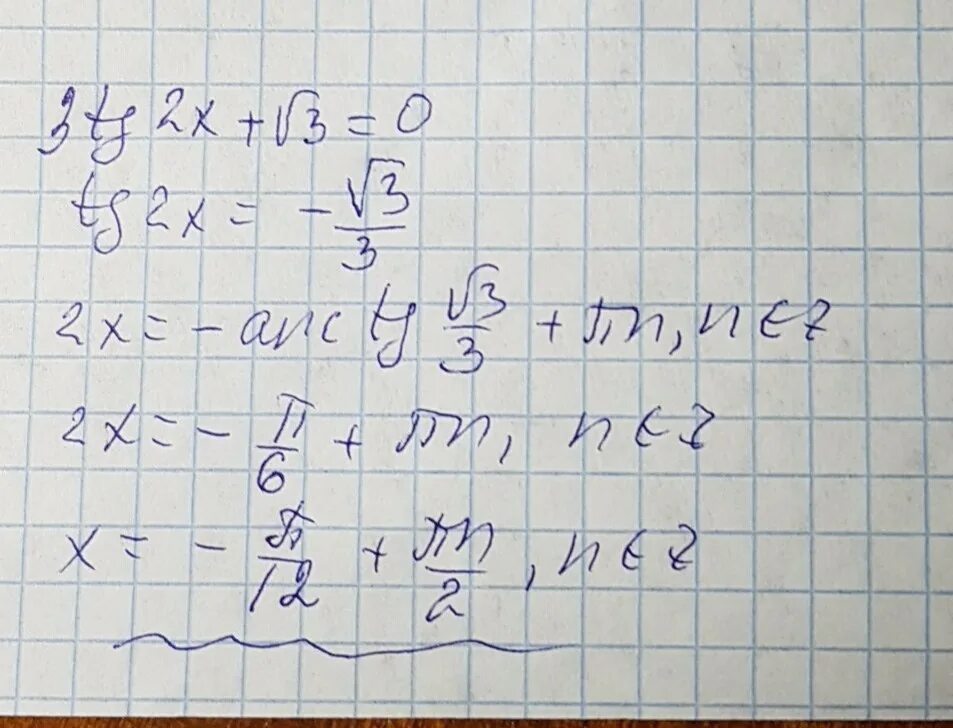 3tg 2x + √3 = 0
tg 2x = - √3/3
2x = - arctg √3/3 + πn, n ∈ Z
2x = - π/6 + πn, n ∈ Z
x = - π/12 + πn/2, n ∈ Z